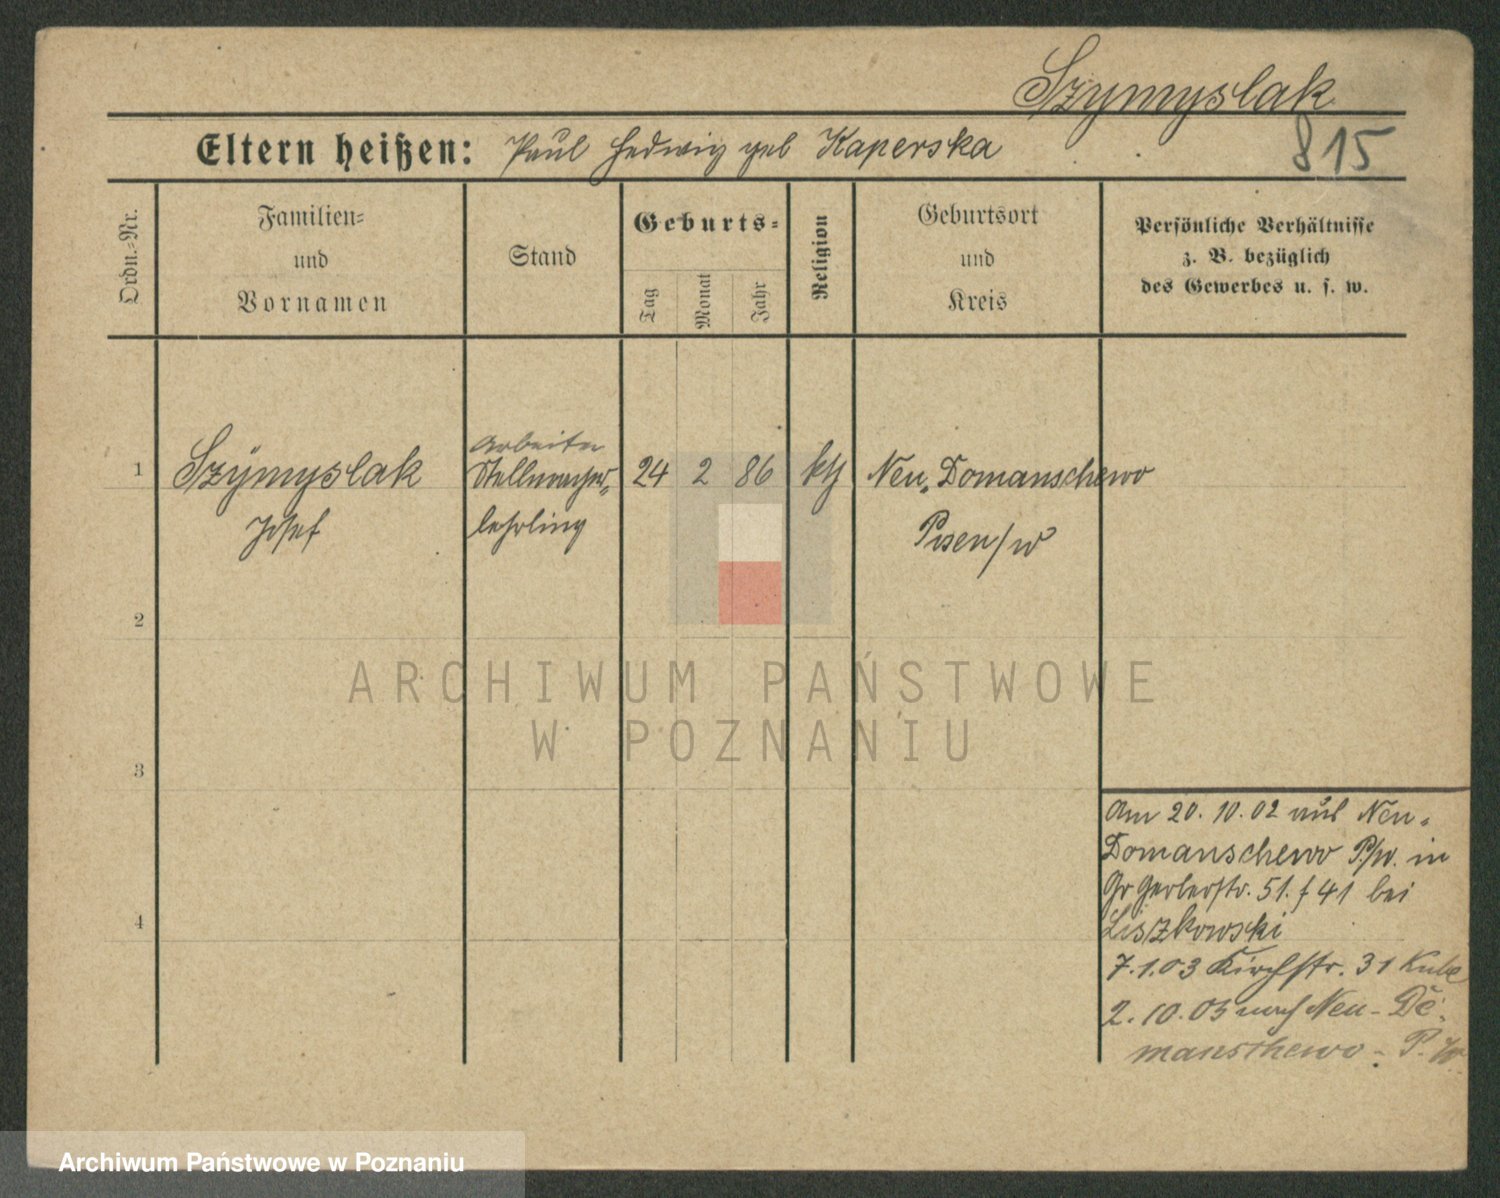 Szymyslak
815
Eltern heißen: Paul Hedwig geb Kaperska
Ordn.=Nr.
Familien=
und
Vornamen
Stand
Geburts=
Tag
Monat
Jahr
Religion
Geburtsort
und
Kreis
Persönliche Verhältnisse
z. B. bezüglich
des Gewerbes u. s. w.
Arbeiter
1 Szÿmyslak Stellmacher= 24 2 86 kth Neu=Domanschewo
Josef lehrling Posen/W
2
3
4
Am 20.10.02 aus Neu=
Domanschewo P/W. in
Gr Gerberstr. 51. f 41 bei
Liszkowski
7.1.03 Kirchstr. 31 Kube
2.10.05 nach Neu-Do=
manschewo - P. W.
ARCHIWUM PAŃSTWOWE
W POZNANIU
Archiwum Państwowe w Poznaniu